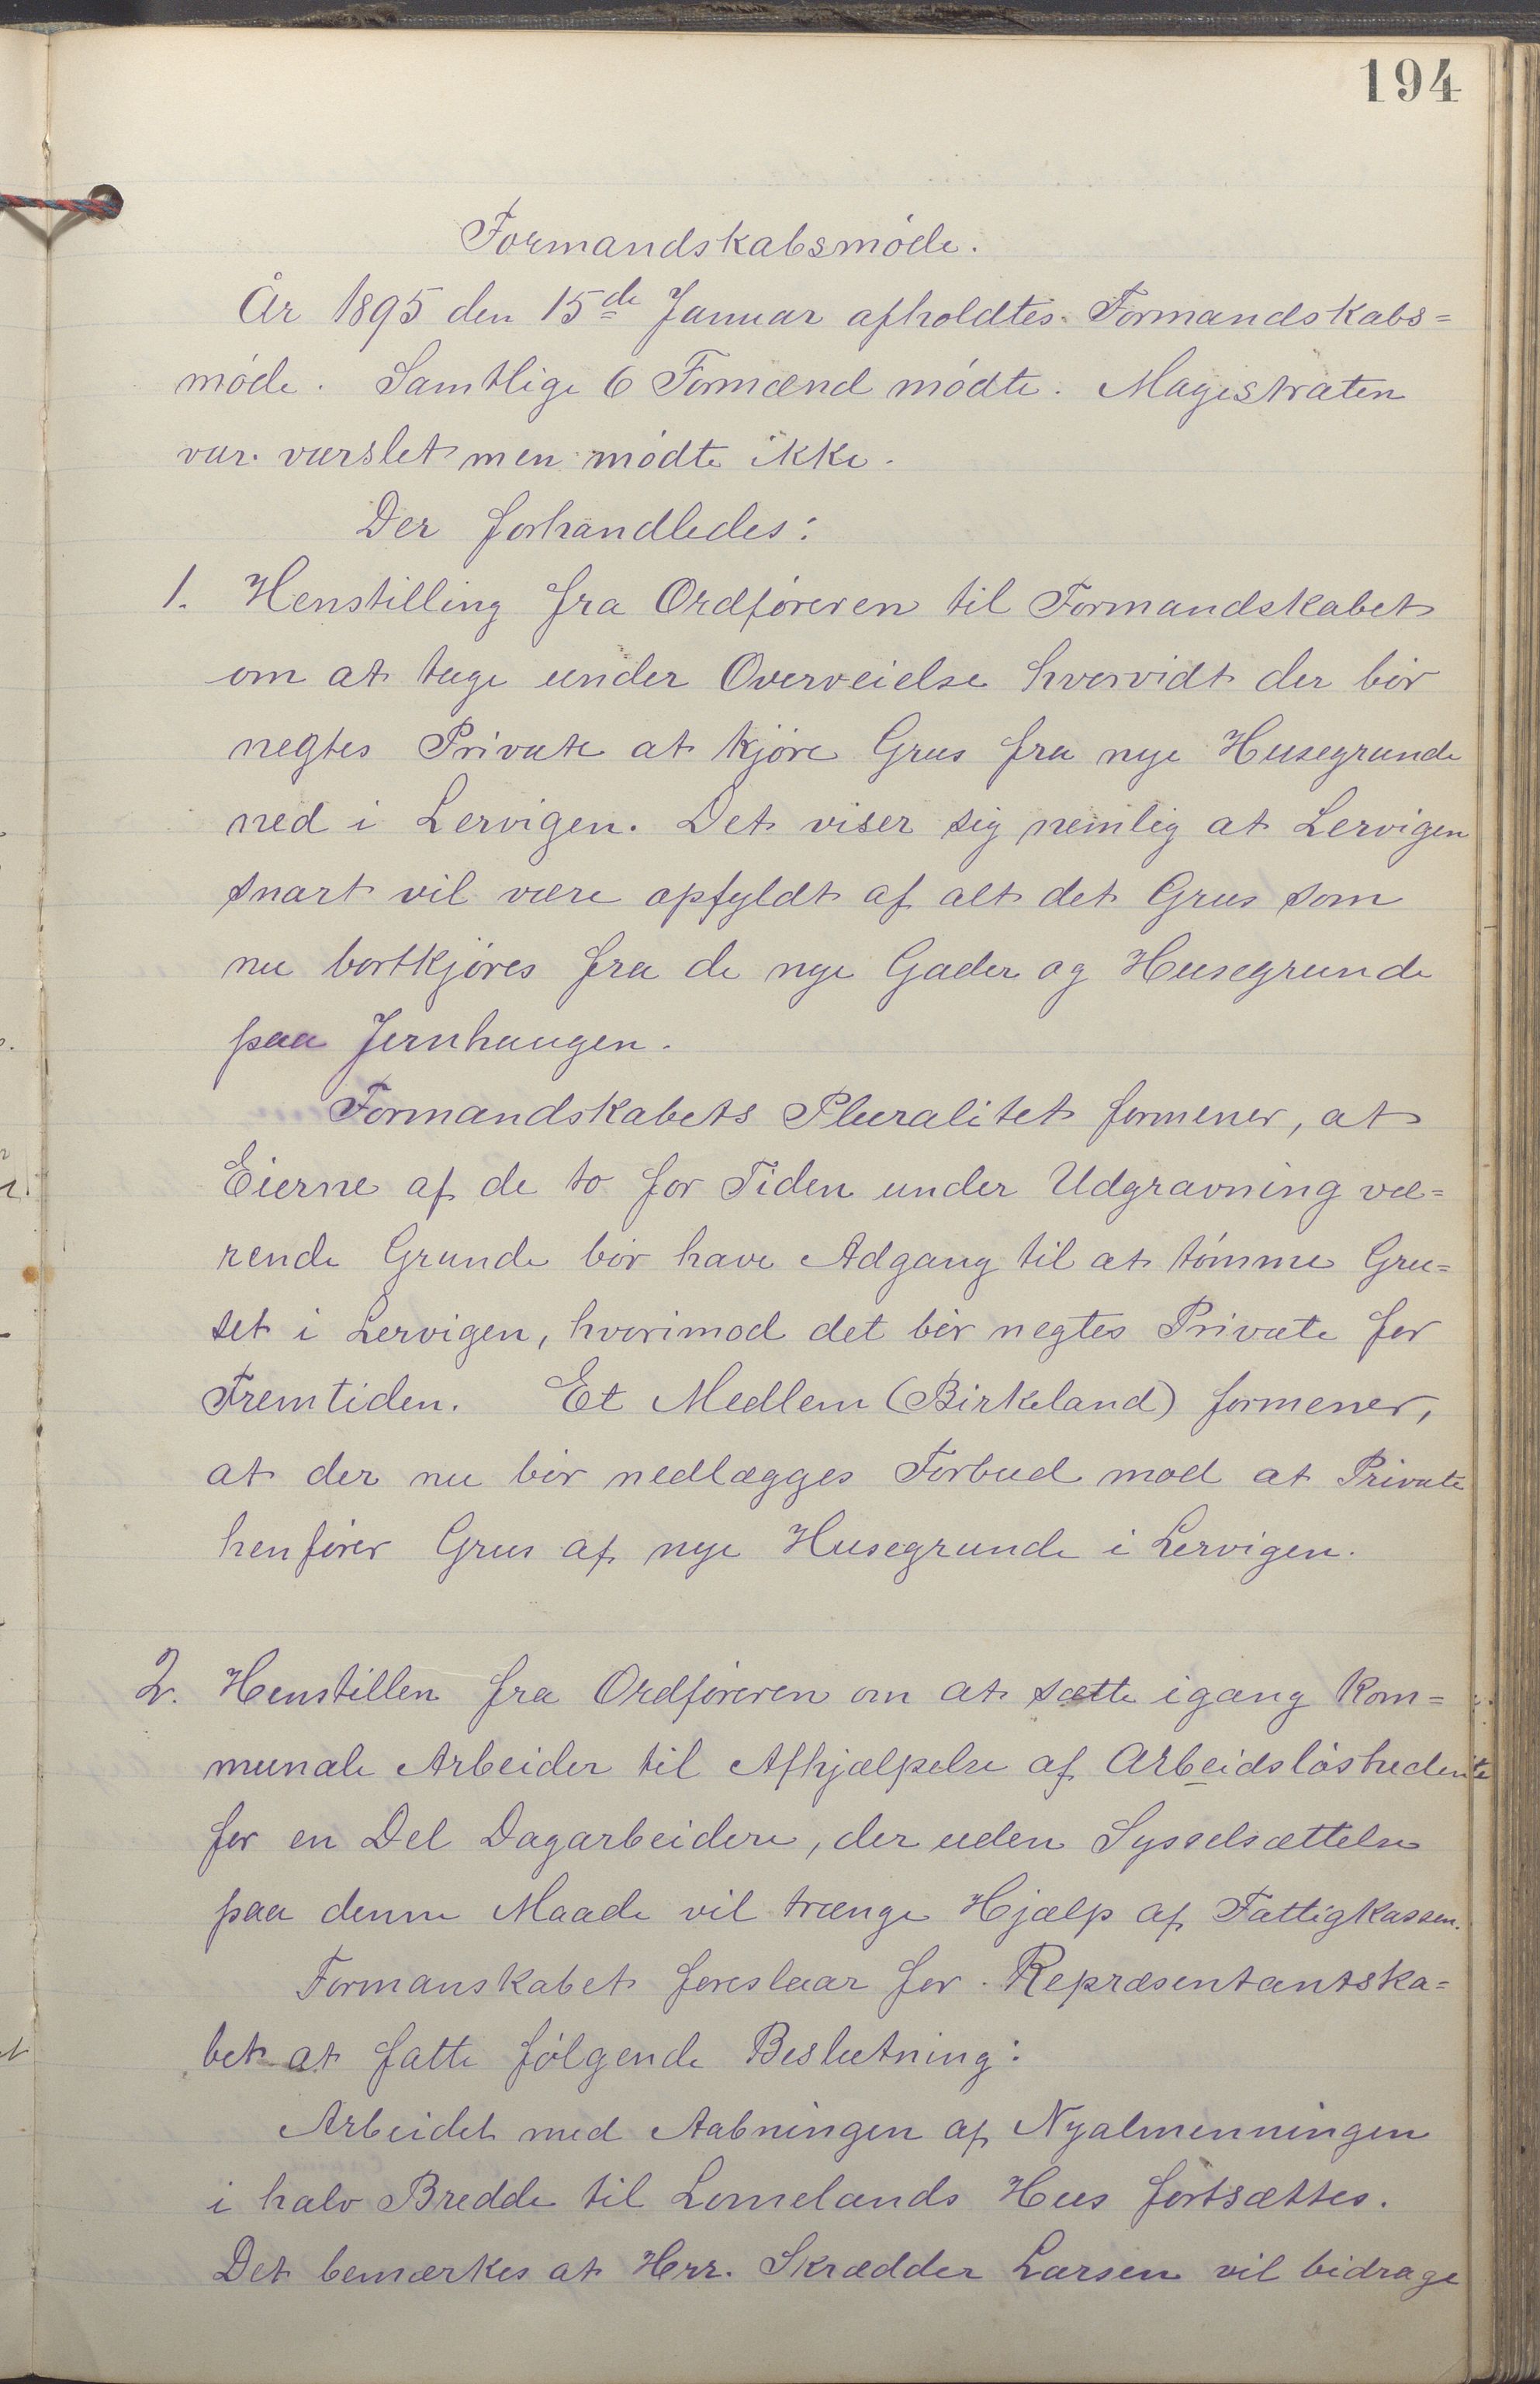 194
Formandskabsmöde.
År 1895 den 15de Januar afholdtes Formandskabs=
möde. Samtlige 6 Formænd mödte. Magistraten
var varslet men mödte ikke.
Der forhandledes:
1. Henstilling fra Ordföreren til Formandskabet
om at tage under Overveielse hvorvidt der bör
negtes Private at kjöre Grus fra nye Husegrunde
ned i Lervigen. Det viser sig nemlig at Lervigen
snart vil være opfyldt af alt det Grus som
nu bortkjöres fra de nye Gader og Husegrunde
paa Jernhaugen.
Formandskabets Pluralitet formener, at
Eierne af de to for Tiden under Udgravning væ=
rende Grunde bör have Adgang til at tömme Gru=
set i Lervigen, hvorimod det bör negtes Private for
Fremtiden. Et Medlem (Birkeland) formener,
at der nu bör nedlægges Forbud mod at Private
henförer Grus af nye Husegrunde i Lervigen.
2. Henstillen fra Ordföreren om at sætte igang Kom=
munale Arbeider til Afhjælpelse af Arbeidslösheden
for en Del Dagarbeidere, der uden Sysselsættelse
paa denne Maade vil trænge Hjælp af Fattigkassen.
Formanskabet foreslaar for Repræsentantska=
bet at fatte fölgende Beslutning:
Arbeidet med Aabningen af Nyalmenningen
i halv Bredde til Lomelands Hus fortsættes.
Det bemærkes at Herr. Skrædder Larsen vil bidrage